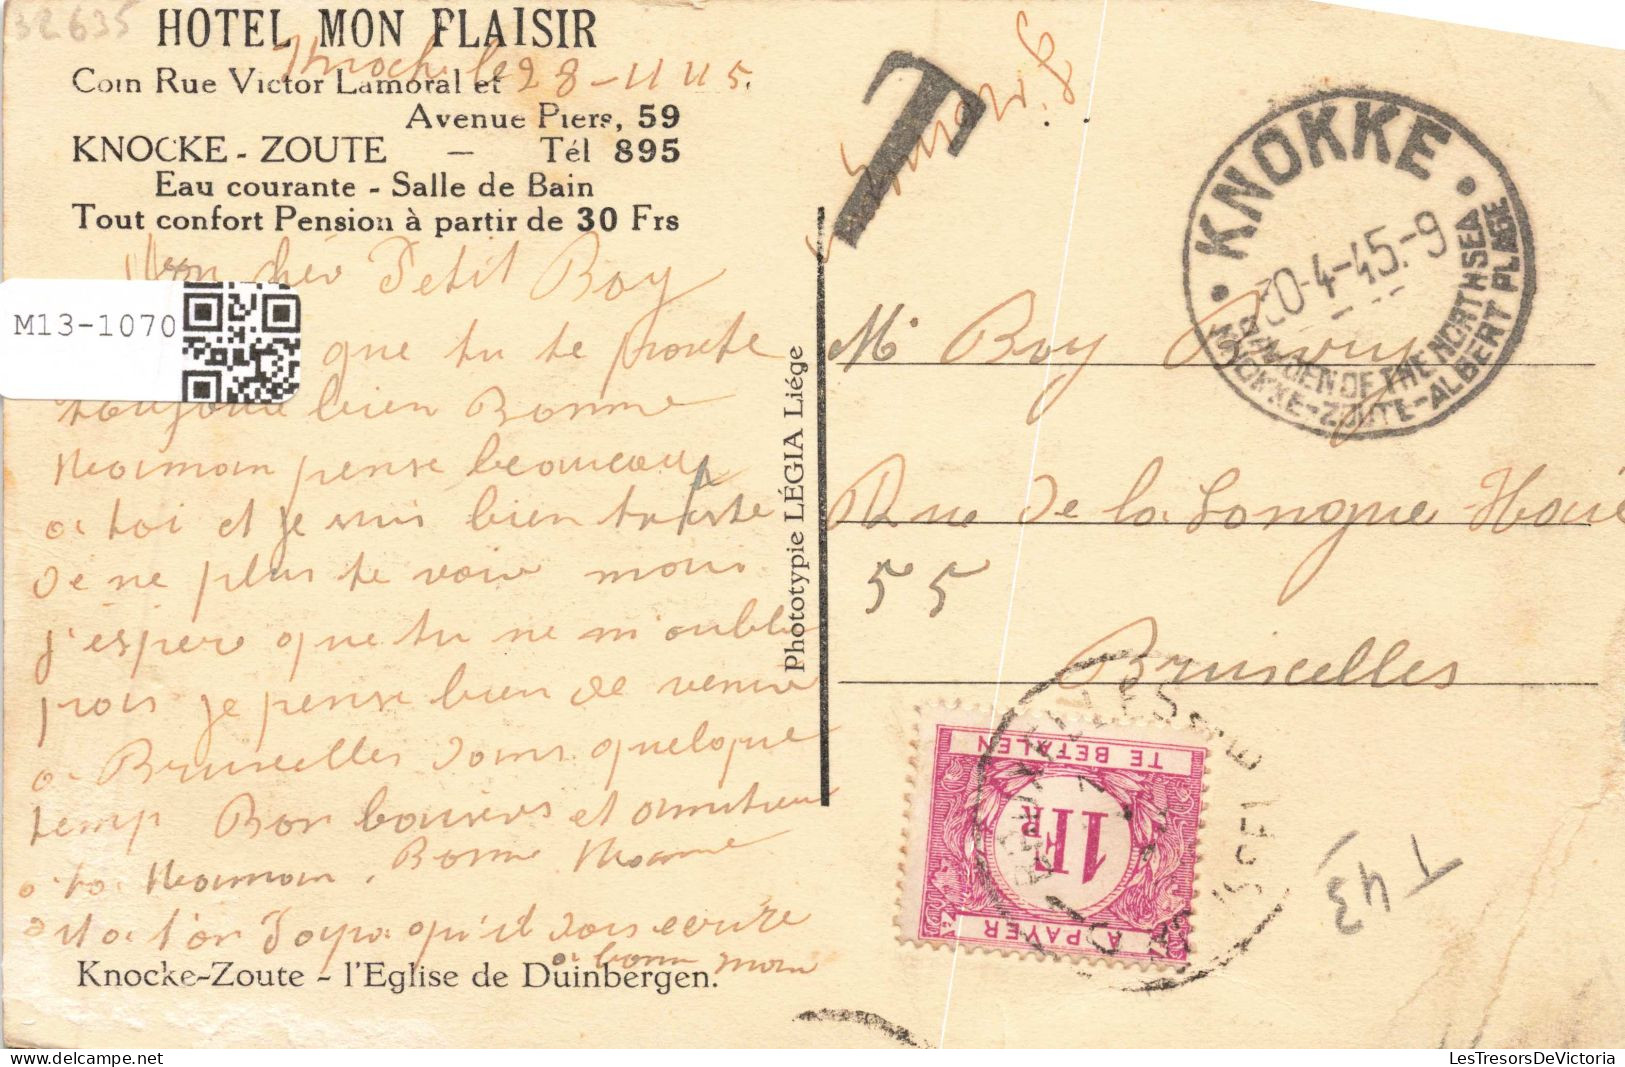 32635
HOTEL MON PLAISIR
Coin Rue Victor Lamoral et
Avenue Piers, 59
KNOCKE - ZOUTE — Tél 895
Eau courante - Salle de Bain
Tout confort Pension à partir de 30 Frs
le 28-4 45.
Mon cher Petit Boy
M13-1070
que tu te porte
toujours bien Bonne
Maman pense beaucoup
a toi et je suis bien triste
de ne plus te voir mais
j'espere que tu ne m'oublie
pois je pense bien de venir
a Bruxelles dans quelque
temp Bon baisers et
a toi Maman. Bonne
a ton Papa qu'il dois ecrire
a bonne mam
Knocke-Zoute - l'Eglise de Duinbergen.
Phototypie LÉGIA Liége
T
KNOKKE
30-4-45.-9
GARDEN OF THE NORTH SEA
KNOKKE-ZOUTE-ALBERT PLAGE
Mr Boy
Rue de la Longue Haie
55
Bruxelles
TE BETALEN
1FR
A PAYER
T 43
LesTresorsDeVictoria